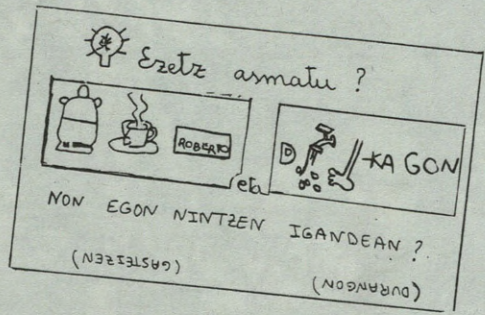 Ezetz asmatu ?
ROBERTO
eta
D
-KA GON
NON EGON NINTZEN IGANDEAN ?
(GASTEIZEN)
(DURANGON)